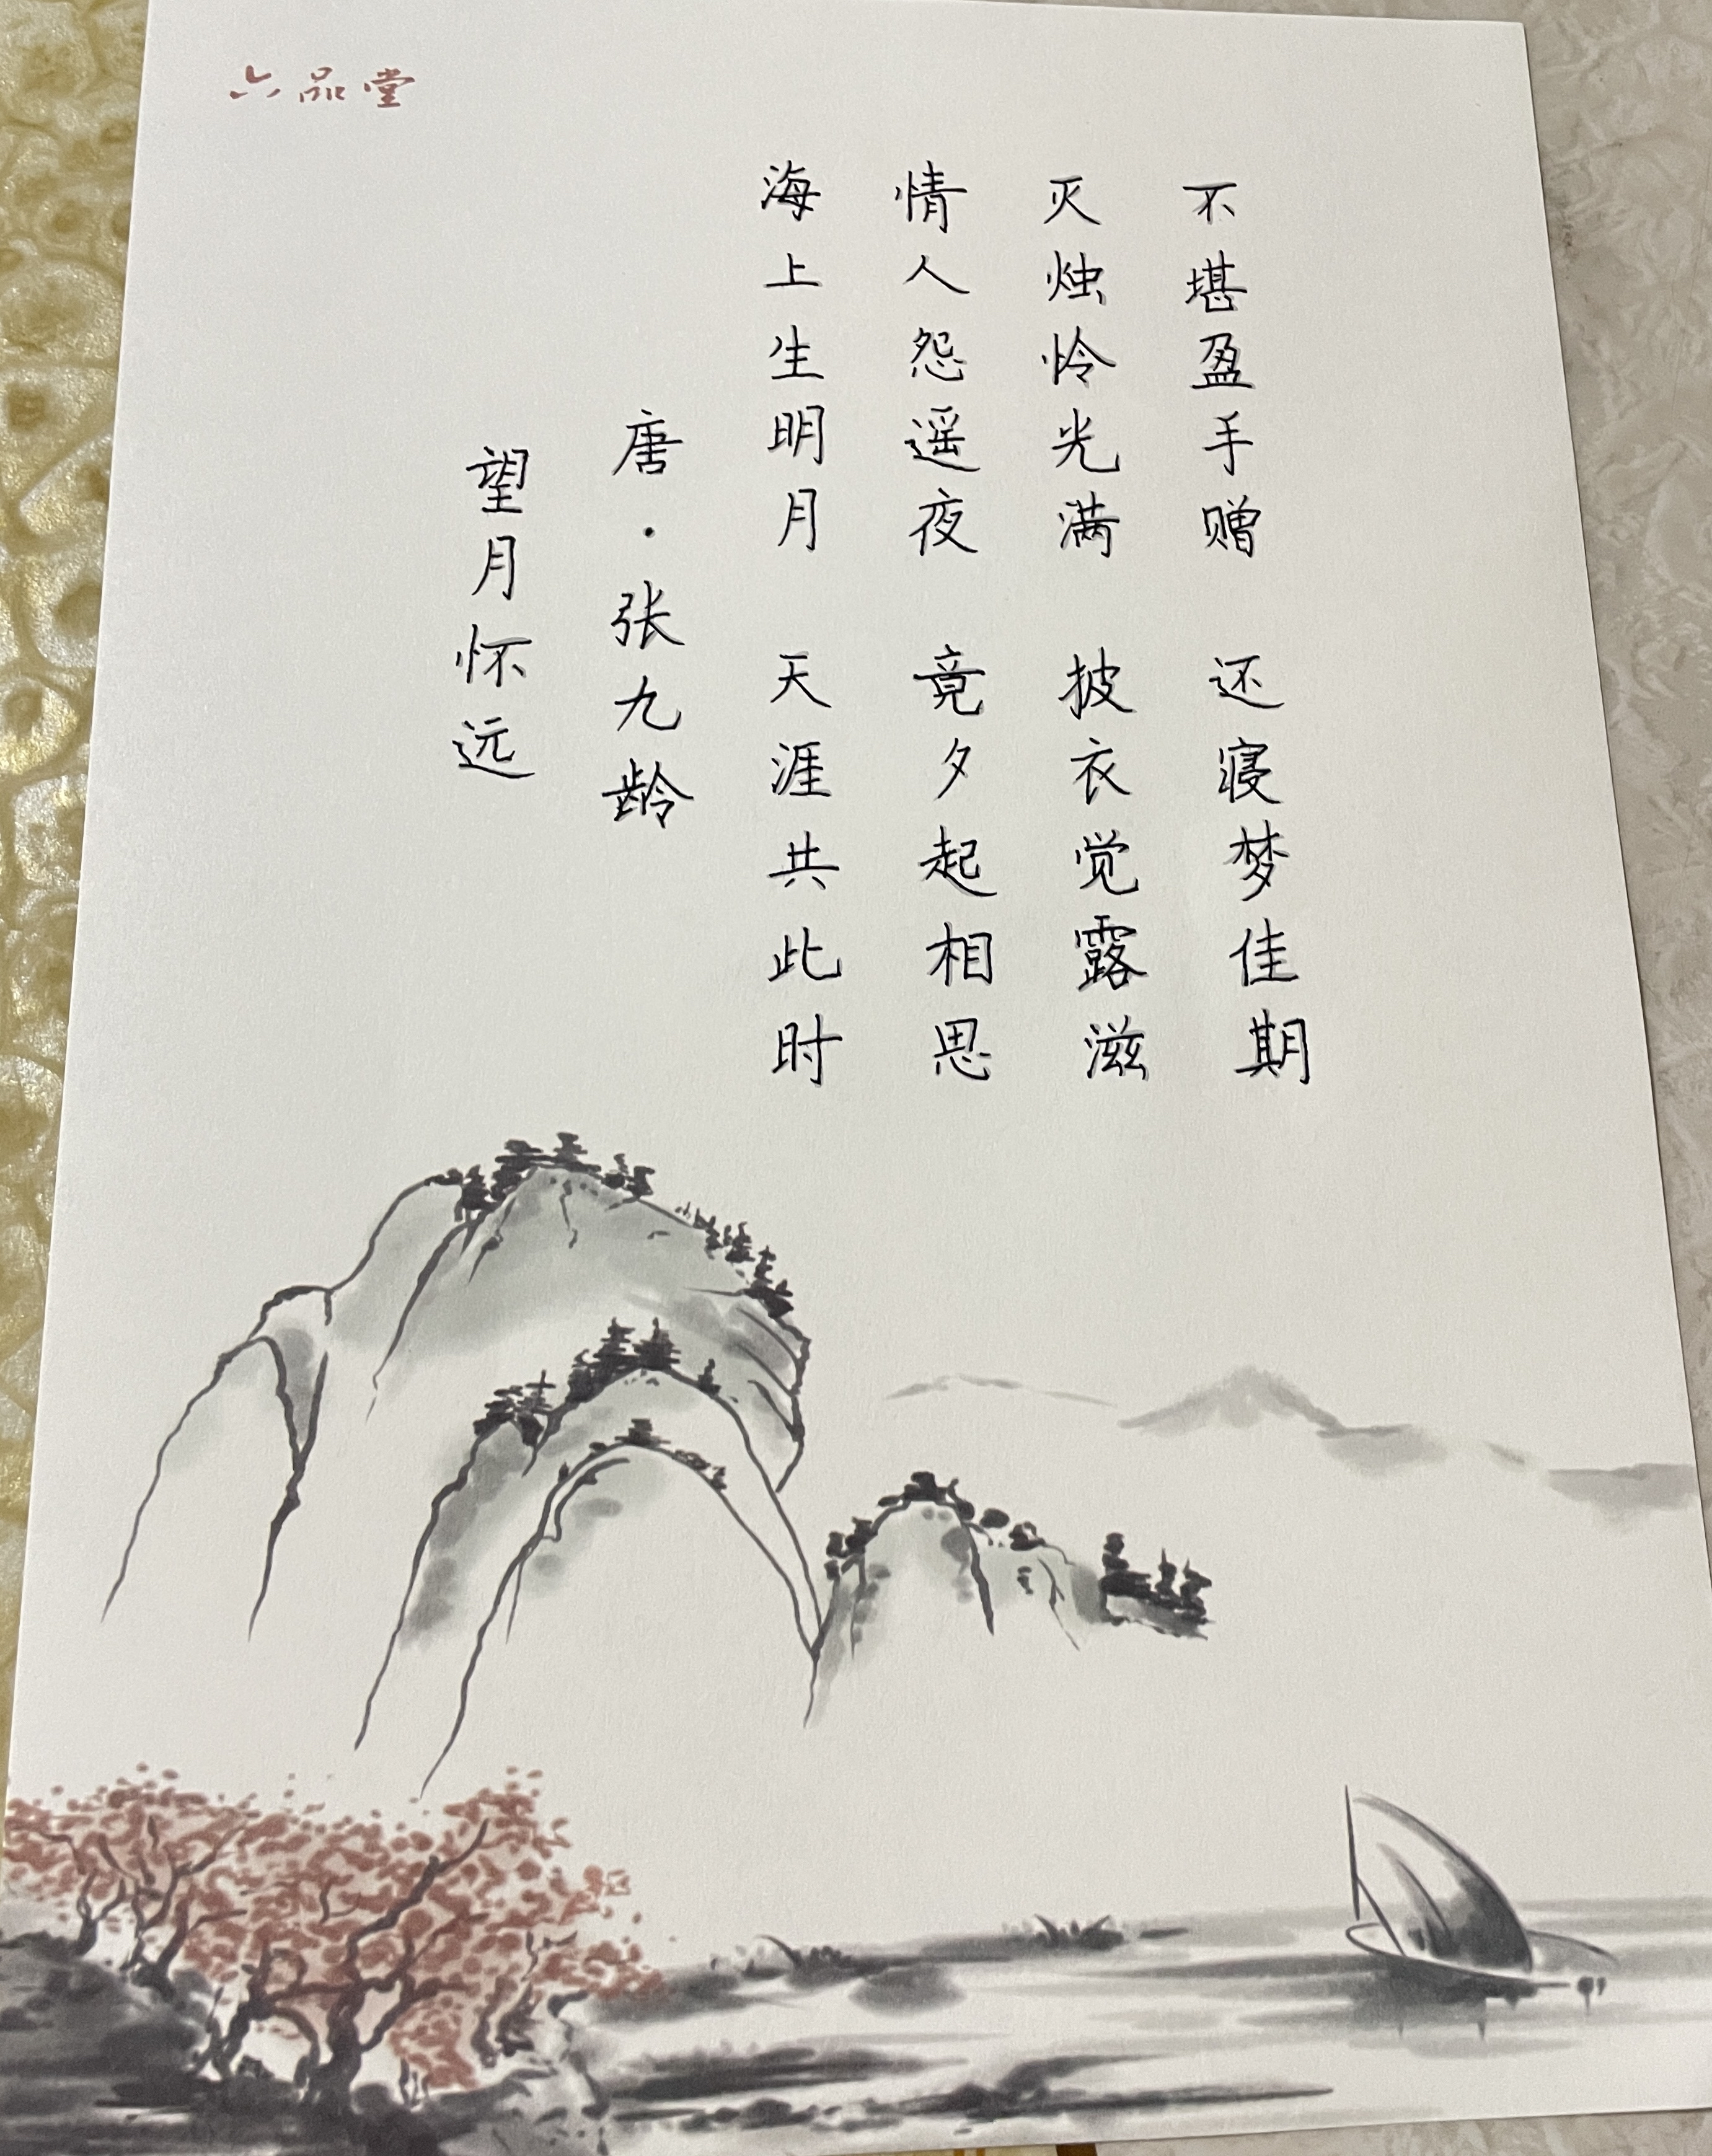 六品堂
望月怀远
唐·张九龄
海上生明月 天涯共此时
情人怨遥夜 竟夕起相思
灭烛怜光满 披衣觉露滋
不堪盈手赠 还寝梦佳期